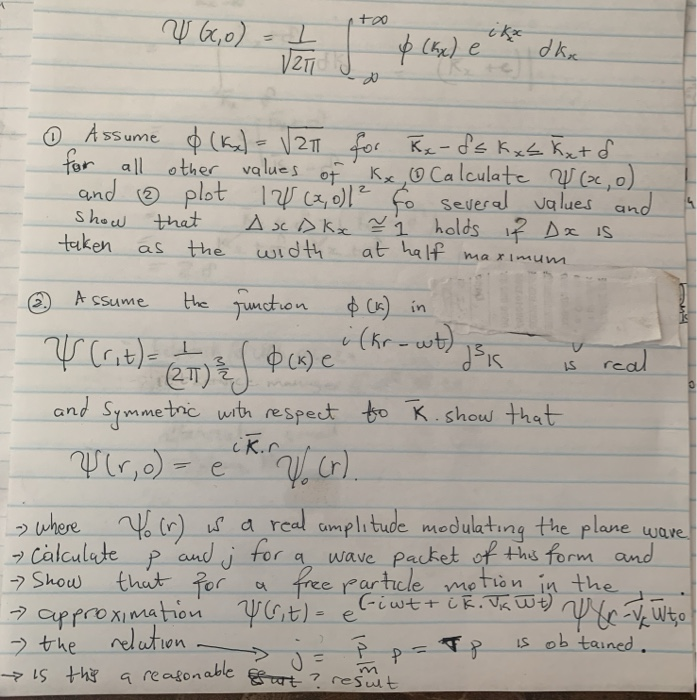 ψ(x,0) = 1/√2π ∫_{-∞}^{+∞} φ(kx) e^{ikx x} dkx
① Assume φ(Kx) = √2π for K̄x - δ ≤ Kx ≤ K̄x + δ
for all other values of Kx, ① Calculate ψ(x,0)
and ② plot |ψ(x,0)|² fo several values and
show that Δx ΔKx ≅ 1 holds if Δx is
taken as the width at half maximum
② Assume the function φ(K) in
ψ(r,t) = 1/(2π)^{3/2} ∫ φ(K) e^{i(Kr - wt)} d³K is real
and symmetric with respect to K̄. show that
ψ(r,0) = e^{iK̄.r} ψ₀(r).
→ where ψ₀(r) is a real amplitude modulating the plane wave
→ Calculate ρ and j for a wave packet of this form and
→ Show that for a free particle motion in the
→ approximation ψ(r,t) = e^{(-iwt + ik̄.∇k w̄t)} ψ(r - ∇̄k w̄t,0
→ the relation → j = p̄/m ρ = ρ is obtained.
→ is this a reasonable ? result